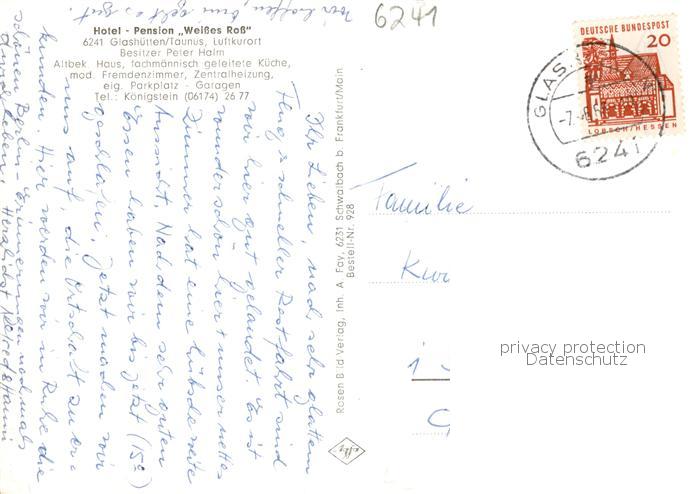 Wir hoffen, Euch geht es gut.
6241
Hotel - Pension „Weißes Roß"
6241 Glashütten/Taunus, Luftkurort
Besitzer Peter Halm
Altbek. Haus, fachmännisch geleitete Küche,
mod. Fremdenzimmer, Zentralheizung,
eig. Parkplatz - Garagen
Tel.: Königstein (06174) 26 77
Ihr Lieben, nach sehr glattem
Flug & schneller Restfahrt sind
wir hier gut gelandet. Es ist
wunderschön hier & unser nettes
Zimmer hat eine hübsche weite
Aussicht. Nach dem sehr guten
Essen haben wir bis jetzt (15°)
geschlafen, jetzt machen wir
uns auf, die Ortschaft zu er-
kunden. Hier werden wir in Ruhe die
schönen Berlin-Erinnerungen nochmals
durchleben. Herzlichst
Rosen Bild Verlag, Inh. A. Fay, 6231 Schwalbach b. Frankfurt/Main
Bestell-Nr. 928
DEUTSCHE BUNDESPOST
20
LORSCH/HESSEN
GLAS
-7.
6241
Familie
Kur
1
privacy protection
Datenschutz